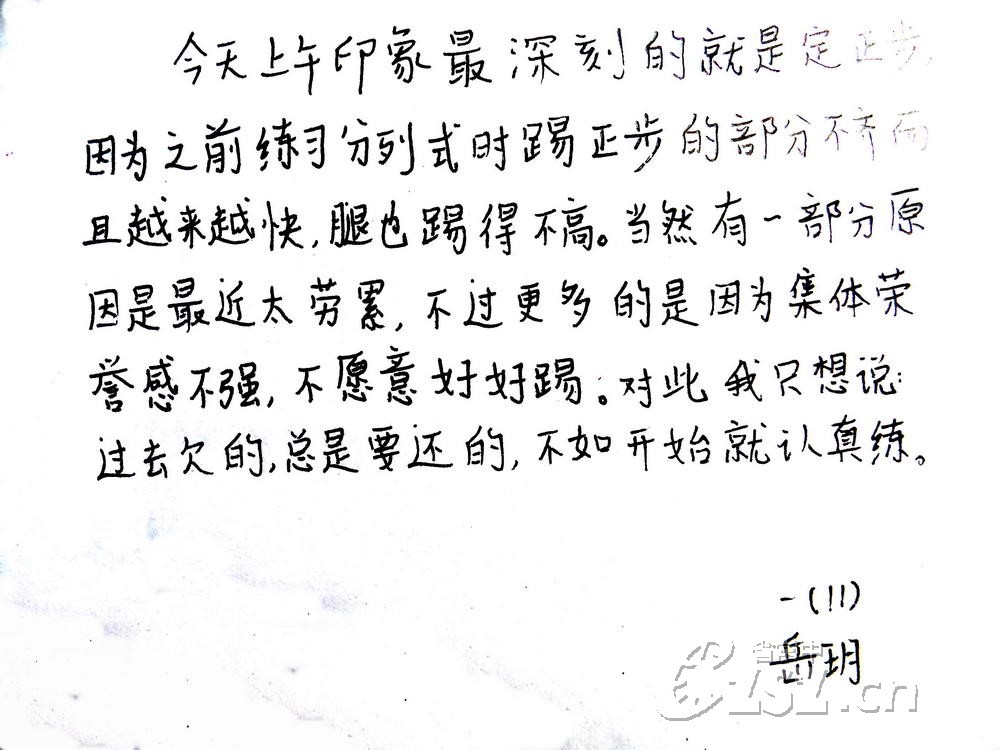 今天上午印象最深刻的就是定正步,
因为之前练习分列式时踢正步的部分不齐而
且越来越快,腿也踢得不高。当然有一部分原
因是最近太劳累,不过更多的是因为集体荣
誉感不强,不愿意好好踢。对此我只想说:
过去欠的,总是要还的,不如开始就认真练。
一(11)
岳玥
省高中
ZSZ.cn